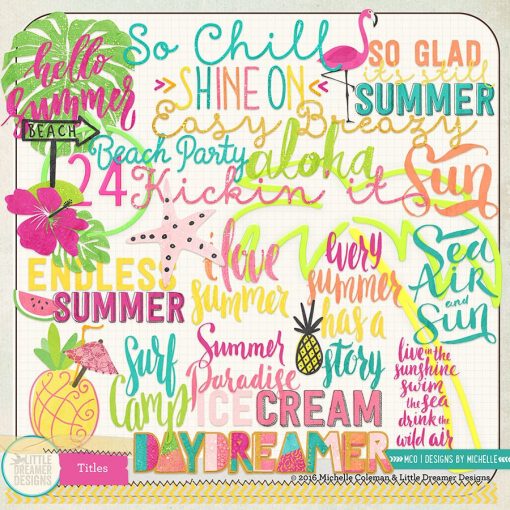 hello
summer
So Chill
SHINE ON
SO GLAD
it's still
SUMMER
Easy Breazy
BEACH
Beach Party
aloha
24
Kickin it
Sun
ENDLESS
SUMMER
i love
summer
every
summer
has a
story
Sea
Air
and
Sun
Surf
Camp
Summer
Paradise
live in the
sunshine
swim
the sea
drink the
wild air
ICE CREAM
DAYDREAMER
LITTLE
DREAMER
DESIGNS
Titles
MCO | DESIGNS BY MICHELLE
© 2016 Michelle Coleman & Little Dreamer Designs